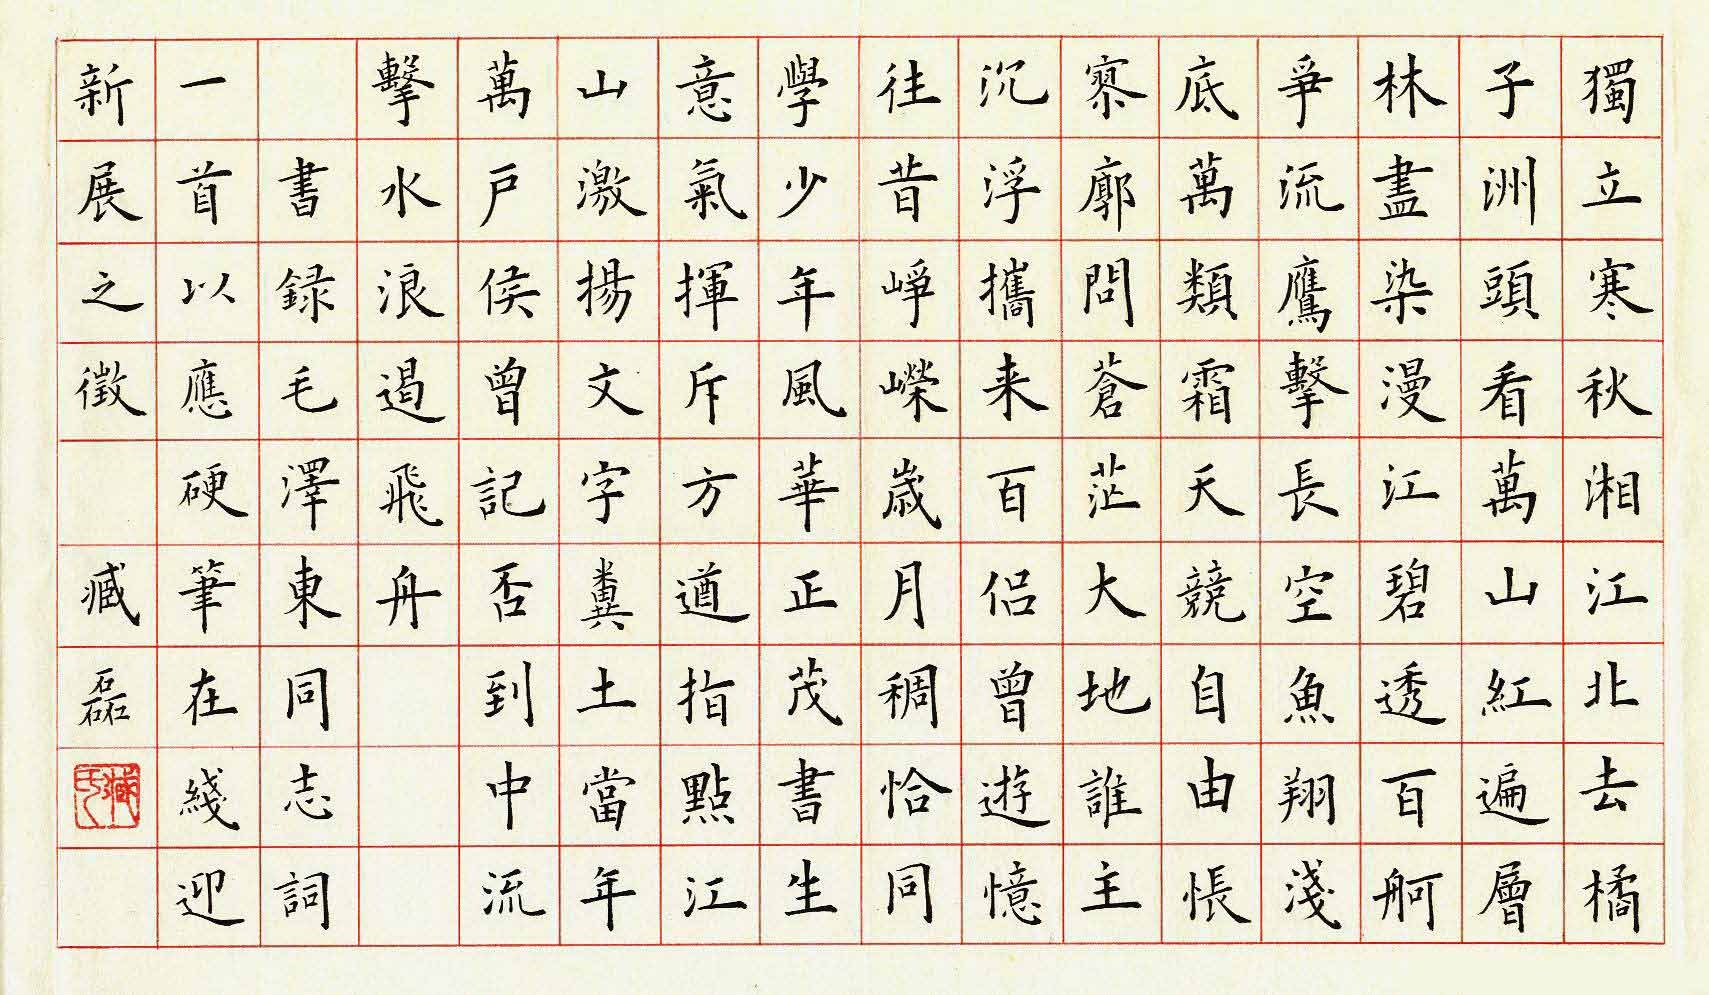 獨立寒秋湘江北去橘
子洲頭看萬山紅遍層
林盡染漫江碧透百舸
爭流鷹擊長空魚翔淺
底萬類霜天競自由悵
寥廓問蒼茫大地誰主
沉浮攜来百侶曾遊憶
往昔崢嶸歲月稠恰同
學少年風華正茂書生
意氣揮斥方遒指點江
山激揚文字糞土當年
萬户侯曾記否到中流
擊水浪遏飛舟
書録毛澤東同志詞
一首以應硬筆在綫迎
新展之徵 臧磊
臧氏